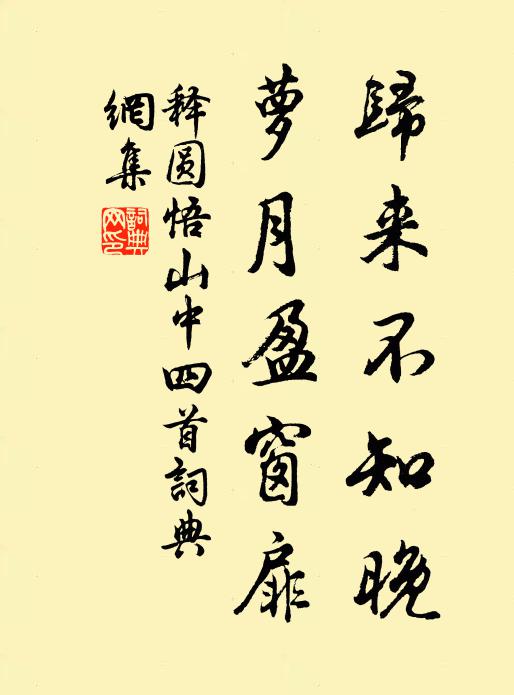 歸来不知晚
萝月盈窗扉
释圆悟山中四首詞典
網集
詞典
网印